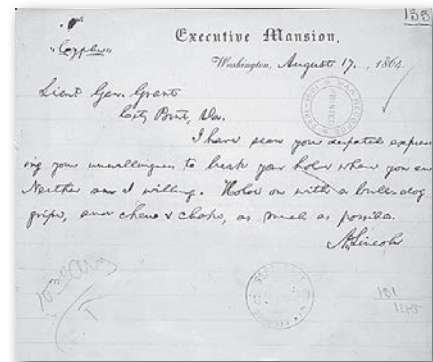 133
"Cypher"
Executive Mansion,
Washington, August 17., 1864.
Lieut. Gen. Grant
City Point, Va.
I have seen your despatch express
ing your unwillingness to break your hold where you are
Neither am I willing. Hold on with a bull-dog
gripe, and chew & choke, as much as possible.
A. Lincoln